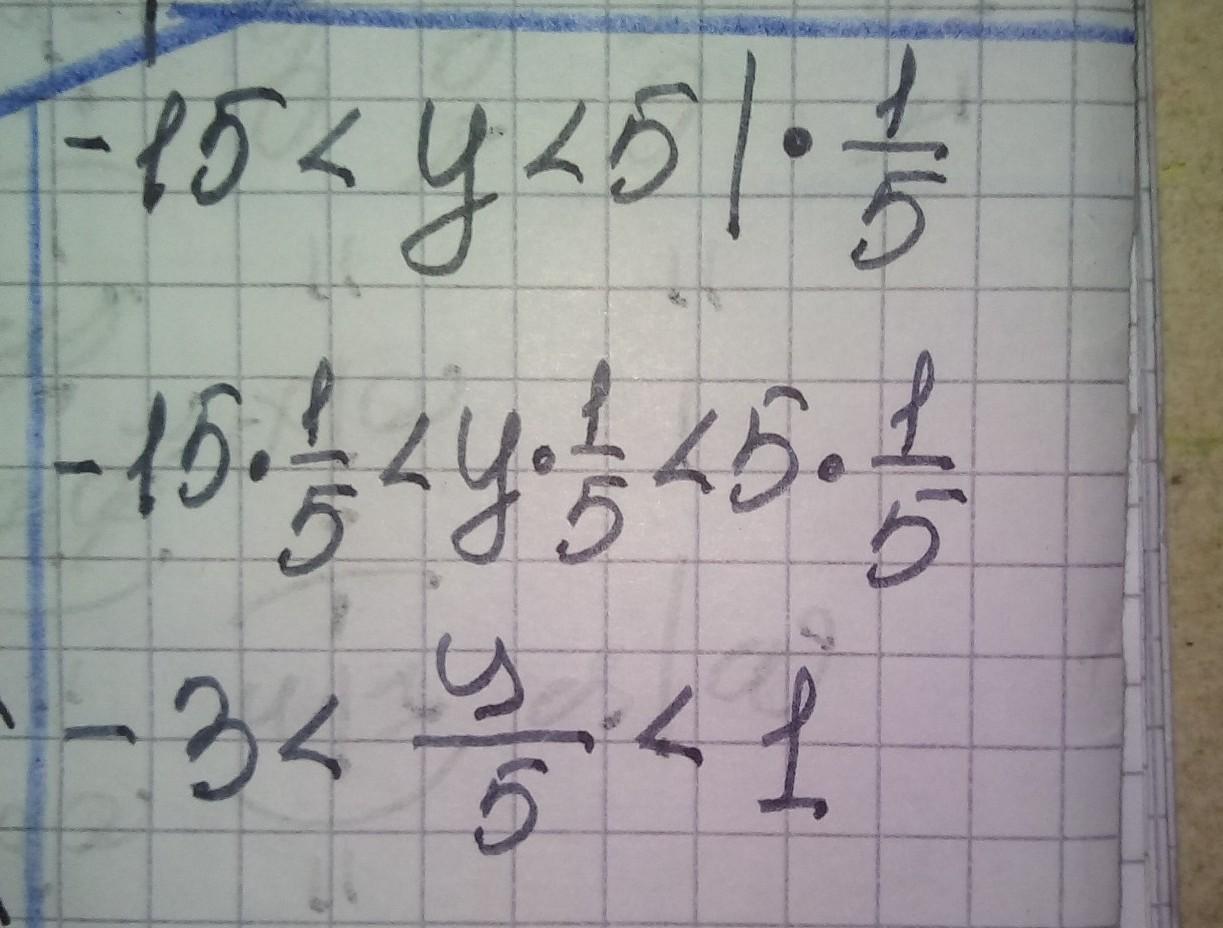 -15 < y < 5 | · 1/5
-15 · 1/5 < y · 1/5 < 5 · 1/5
-3 < y/5 < 1